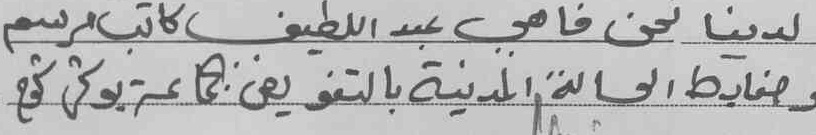 لدينا نحن فاهي عبد اللطيف كاتب مرسم
وضابط الحالة المدنية بالتفويض بجماعة بوكركوح